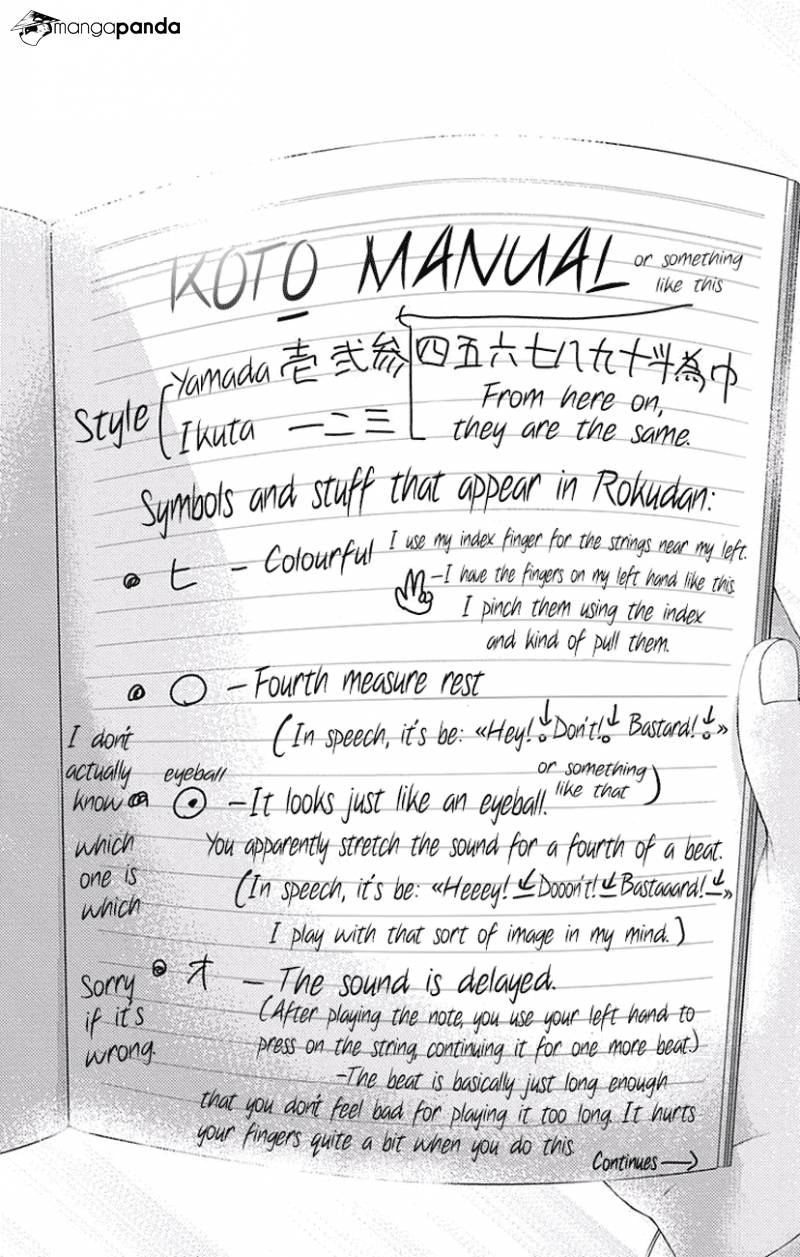 mangapanda
KOTO MANUAL or something like this
Style
Yamada 壱 弐 参 四五六七八九十斗為巾
Ikuta 一二三
From here on,
they are the same.
Symbols and stuff that appear in Rokudan:
ヒ – Colourful
I use my index finger for the strings near my left.
–I have the fingers on my left hand like this.
I pinch them using the index
and kind of pull them.
○ – Fourth measure rest
(In speech, it's be: «Hey!↓Don't!↓ Bastard!↓»
or something like that)
I don't
actually
know
which
one is
which
eyeball
⊙ –It looks just like an eyeball.
You apparently stretch the sound for a fourth of a beat.
(In speech, it's be: «Heeey!↓Dooon't!↓Bastaaard!↓»
I play with that sort of image in my mind.)
Sorry
if it's
wrong.
オ – The sound is delayed.
(After playing the note, you use your left hand to
press on the string, continuing it for one more beat.)
–The beat is basically just long enough
that you don't feel bad for playing it too long. It hurts
your fingers quite a bit when you do this.
Continues→